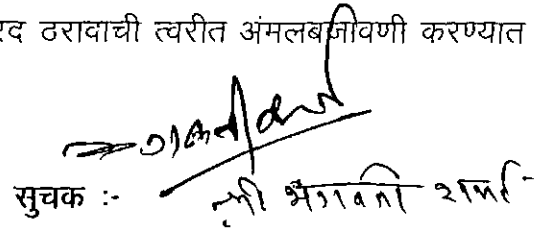 रद ठरावाची त्वरीत अंमलबजावणी करण्यात
सुचक :- श्री भगवती शर्मा